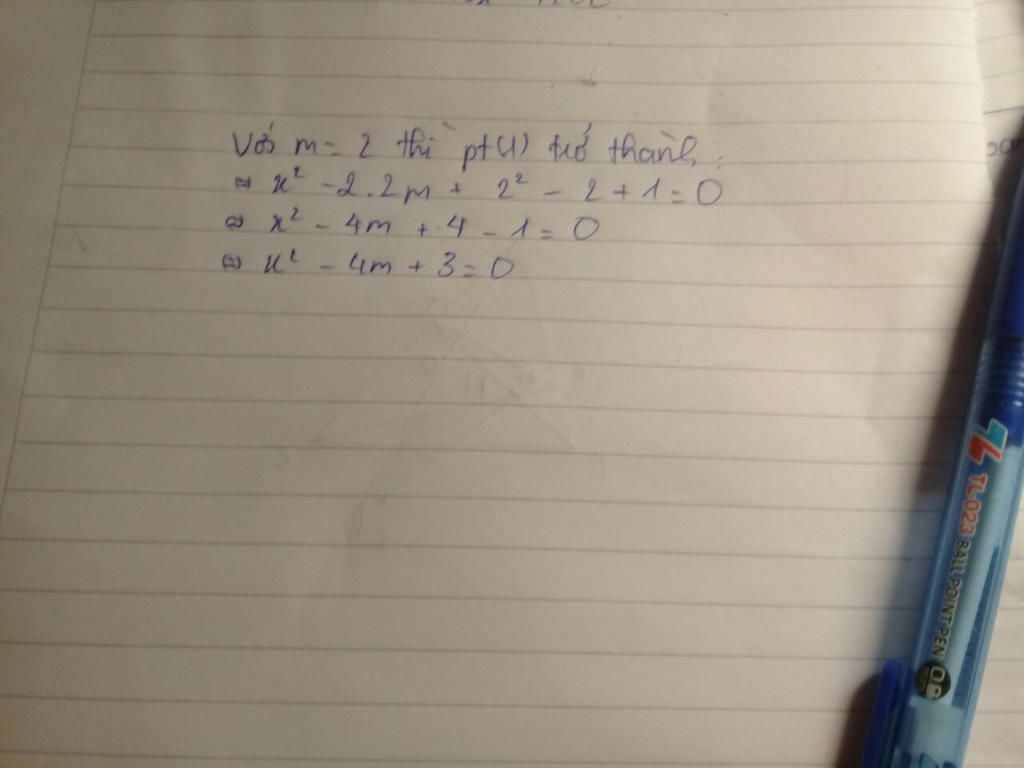 Với m = 2 thì pt(1) trở thành:
⇔ x² - 2.2m + 2² - 2 + 1 = 0
⇔ x² - 4m + 4 - 1 = 0
⇔ x² - 4m + 3 = 0
TL-023 BALL POINT PEN